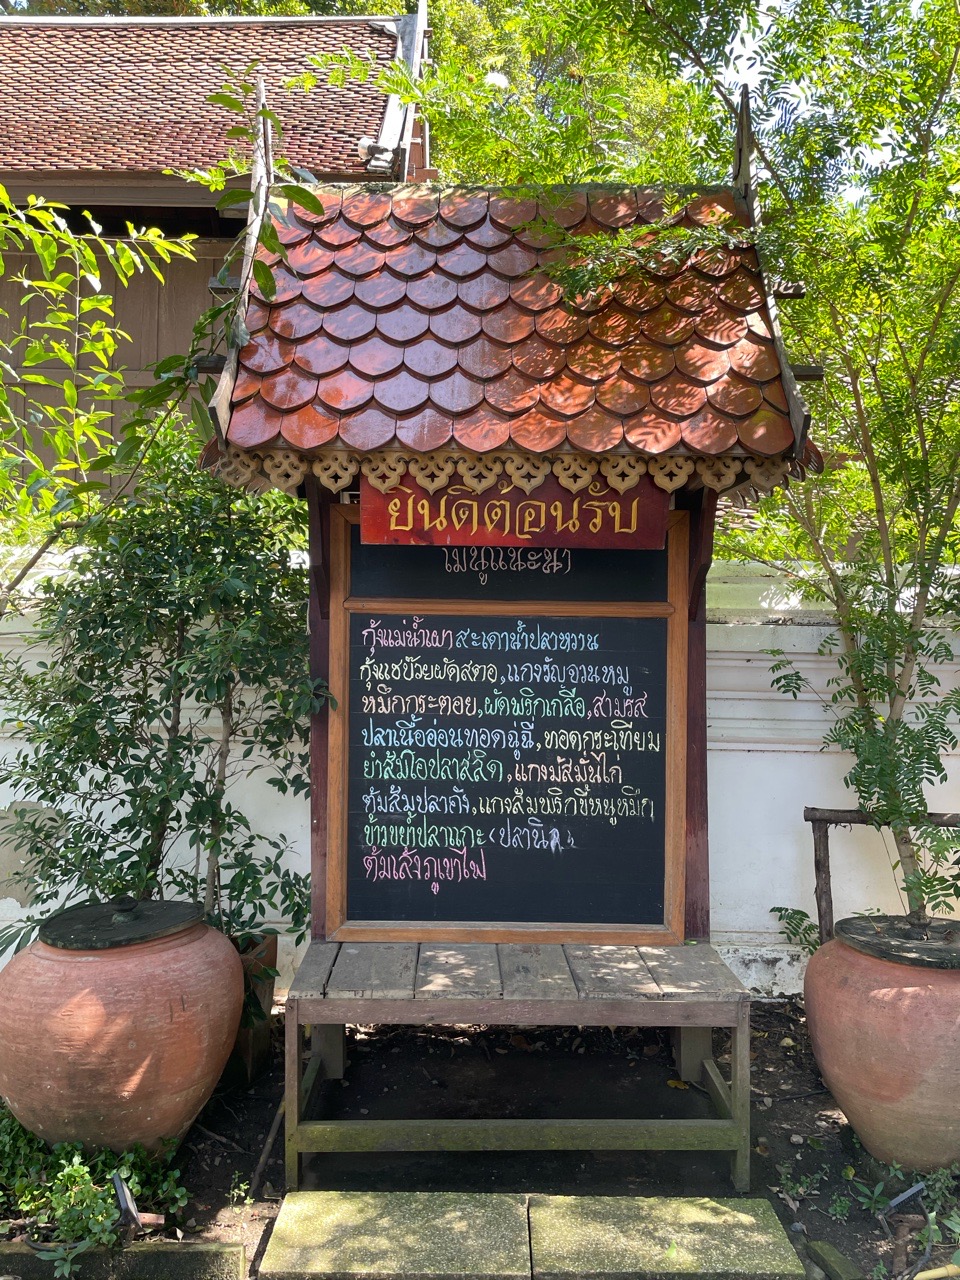 ยินดีต้อนรับ
เมนูแนะนำ
กุ้งแม่น้ำเผาสะเดาน้ำปลาหวาน
กุ้งแช่บ๊วยผัดสตอ,แกงรัญจวนหมู
หมึกกระตอย,ผัดพริกเกลือ,สามรส
ปลาเนื้ออ่อนทอดฉู่ฉี่,ทอดกระเทียม
ยำส้มโอปลาสลิด,แกงมัสมั่นไก่
ต้มส้มปลาคัง,แกงส้มพริกขี้หนูหมึก
ข้าวขยำปลาแกะ (ปลานิล)
ต้มเล้งภูเขาไฟ